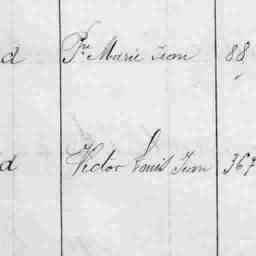 d Fr. Marie Jean 88
d Victor Louis Jean 367